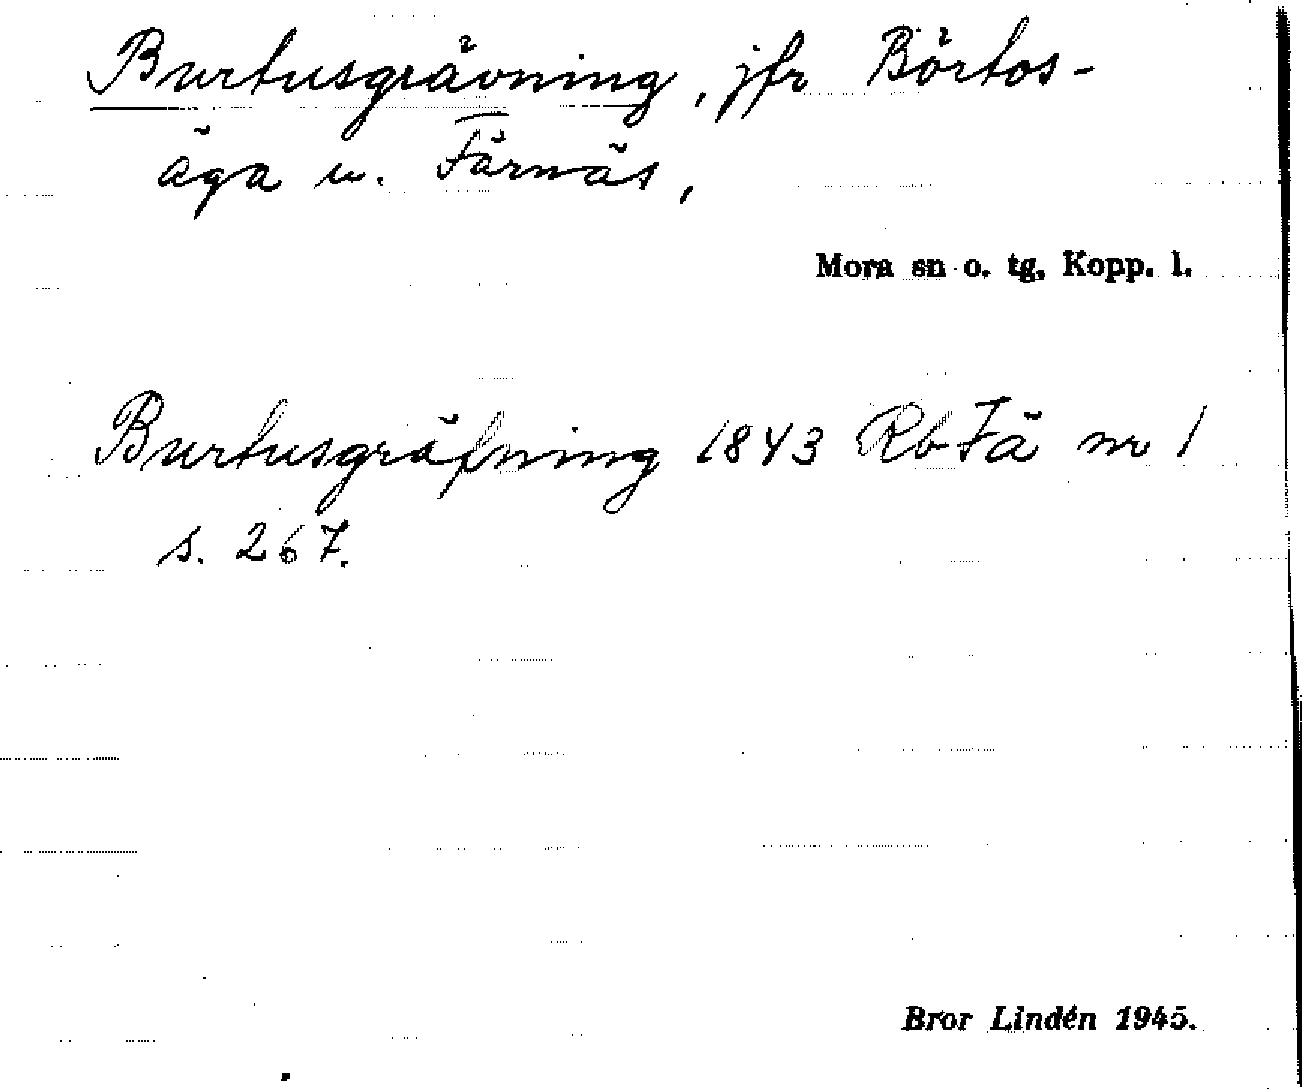 Burtusgrävning, jfr Börtos-
äga u. Färnäs,
Mora sn o. tg, Kopp. l.
Burtusgräfning 1843 Rb Fä nr 1
s. 267.
Bror Lindén 1945.